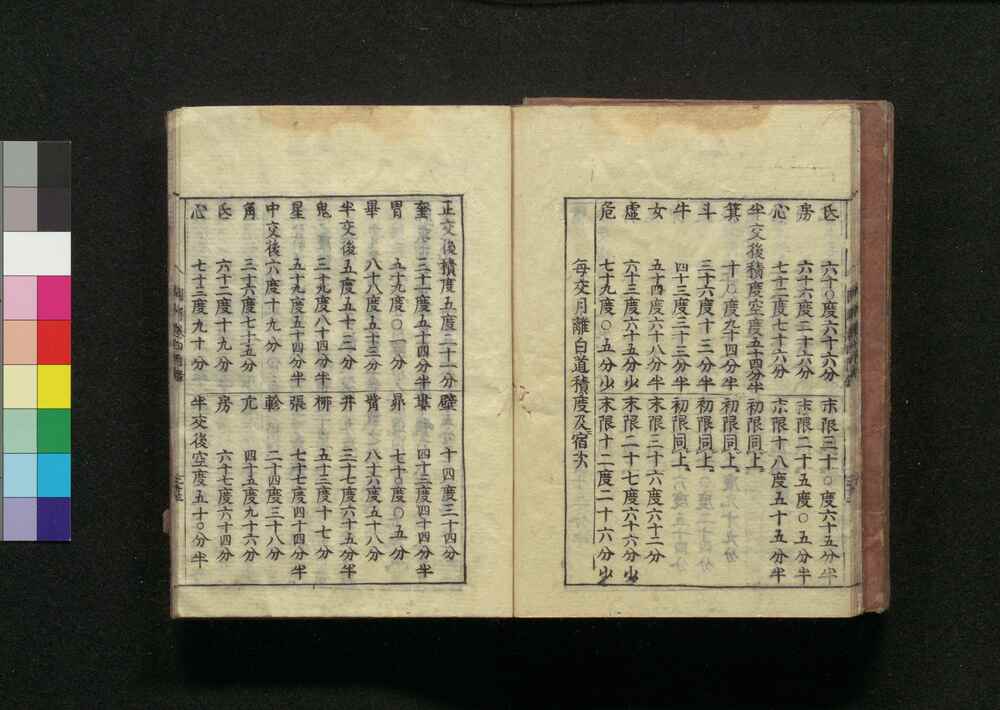 氐 六十〇度六十六分 末限三十〇度六十五分半
房 六十六度二十六分 末限二十五度〇五分半
心 七十二度七十六分 末限十八度五十五分半
半交後積度空度五十四分半 初限同上
箕 十 度九十四分半 初限同上
斗 三十六度十三分半 初限同上
牛 四十三度三十三分半 初限同上
女 五十四度六十八分半 末限三十六度六十二分
虛 六十三度六十五分少 末限二十七度六十六分少
危 七十九度〇五分少 末限十二度二十六分少
每交月離白道積度及宿次
正交後積度五度二十一分 壁 十四度三十四分
奎 三十二度五十四分半 婁 四十三度四十四分半
胃 五十九度〇 分 昴 七十度〇五分
畢 八十八度五十三分 觜 八十六度五十八分
半交後五度五十二分 井 三十七度六十五分半
鬼 三十九度八十四分半 柳 五十三度十七分
星 五十九度五十四分半 張 七十七度四十四分半
中交後六度十九分 軫 二十四度三十八分
角 三十六度七十五分 亢 四十五度九十六分
氐 六十二度十九分 房 六十七度六十四分
心 七十三度九十分 半交後空度五十〇分半